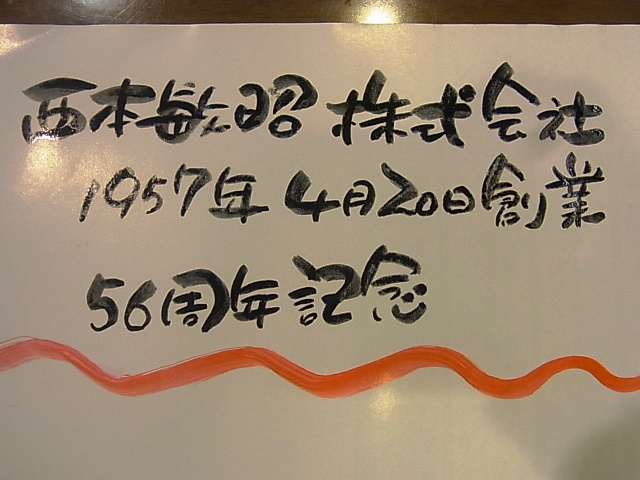 西本敏昭株式会社
1957年4月20日創業
56周年記念